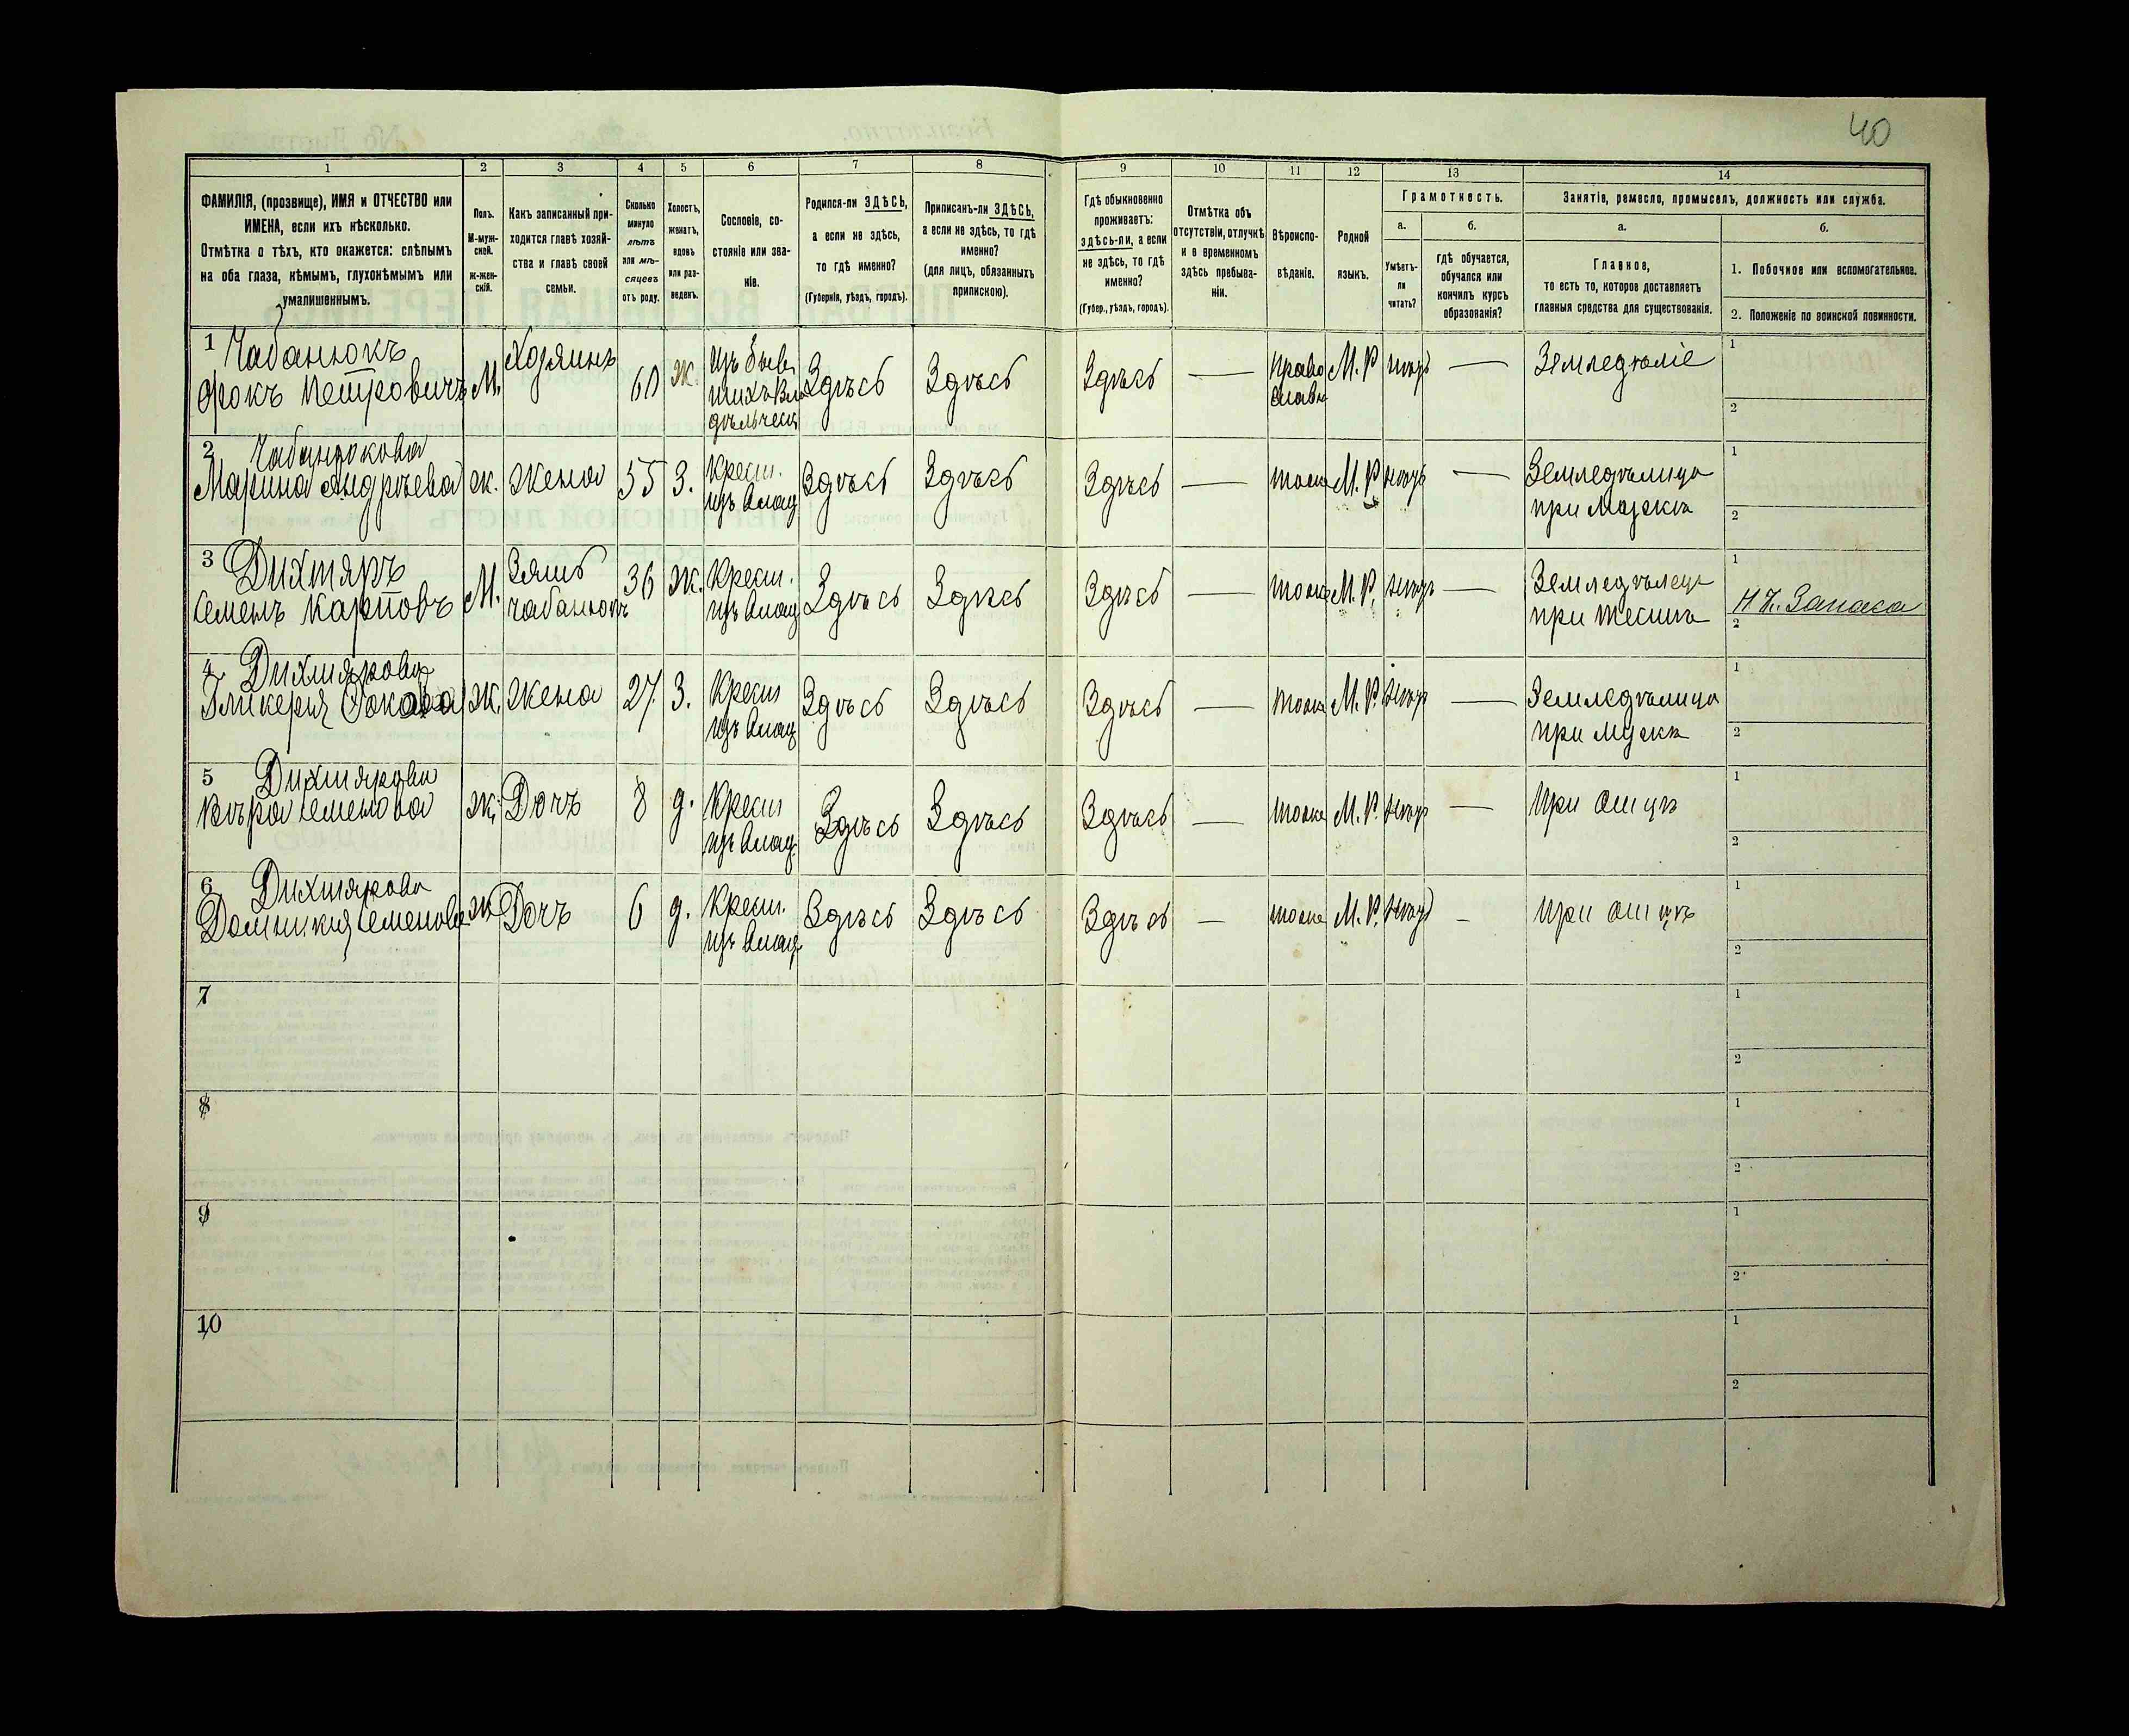 40
1 2 3 4 5 6 7 8 9 10 11 12 13 14
ФАМИЛІЯ, (прозвище), ИМЯ и ОТЧЕСТВО или
ИМЕНА, если ихъ нѣсколько.
Отмѣтка о тѣхъ, кто окажется: слѣпымъ
на оба глаза, нѣмымъ, глухонѣмымъ или
умалишеннымъ.
Полъ.
М-муж-
ской.
ж-жен-
скій.
Какъ записанный при-
ходится главѣ хозяй-
ства и главѣ своей
семьи.
Сколько
минуло
лѣтъ
или мѣ-
сяцевъ
отъ роду.
Холостъ,
женатъ,
вдовъ
или раз-
веденъ.
Сословіе, со-
стояніе или зва-
ніе.
Родился-ли ЗДѢСЬ,
а если не здѣсь,
то гдѣ именно?
(Губернія, уѣздъ, городъ).
Приписанъ-ли ЗДѢСЬ,
а если не здѣсь, то гдѣ
именно?
(для лицъ, обязанныхъ
припискою).
Гдѣ обыкновенно
проживаетъ:
здѣсь-ли, а если
не здѣсь, то гдѣ
именно?
(Губер., уѣздъ, городъ).
Отмѣтка объ
отсутствіи, отлучкѣ
и в временномъ
здѣсь пребыва-
ніи.
Вѣроиспо-
вѣданіе.
Родной
языкъ.
Грамотность.
а.
Умѣетъ-
ли
читать?
б.
гдѣ обучается,
обучался или
кончилъ курсъ
образованія?
Занятіе, ремесло, промыселъ, должность или служба.
а.
Главное,
то есть то, которое доставляетъ
главныя средства для существованія.
б.
1. Побочное или вспомогательное.
2. Положеніе по воинской повинности.
1 Чабанюкъ
Фокъ Петровичъ М. Хозяинъ 60 ж. Изъ быв
шихъ Вла
дѣльческ Здѣсь Здѣсь Здѣсь — Право
слав М. Р — Земледѣліе
1
2
2 Чабанюкова
Марина Андрѣева ж. Жена 55 З. Крест.
изъ Влад Здѣсь Здѣсь Здѣсь — тоже М. Р — Земледѣлица
при Мужѣ
1
2
3 Дихтяръ
Семенъ Карповъ М. Зять
Чабанюкъ 36 Ж. Крест.
изъ Влад Здѣсь Здѣсь Здѣсь тоже М. Р. — Земледѣлецъ
при тестѣ
1
2
4 Дихтярова
Гликерія Фокова Ж. Жена 27 З. Крест
изъ Влад Здѣсь Здѣсь Здѣсь — тоже М. Р. — Земледѣлица
при Мужѣ
1
2
5 Дихтярова
Вѣра Семенова ж. Дочъ 8 д. Крест
изъ Влад. Здѣсь Здѣсь Здѣсь — тоже М. Р. — При отцѣ
1
2
6 Дихтярова
Домникія Семенова ж Дочъ 6 д. Крест.
изъ Влад Здѣсь Здѣсь Здѣсь — тоже М. Р. — При отцѣ
1
2
7
1
2
8
1
2
9
1
2
10
1
2